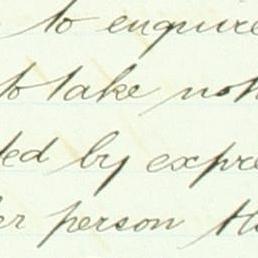 to enquire
to take not
ted by expre
er person th